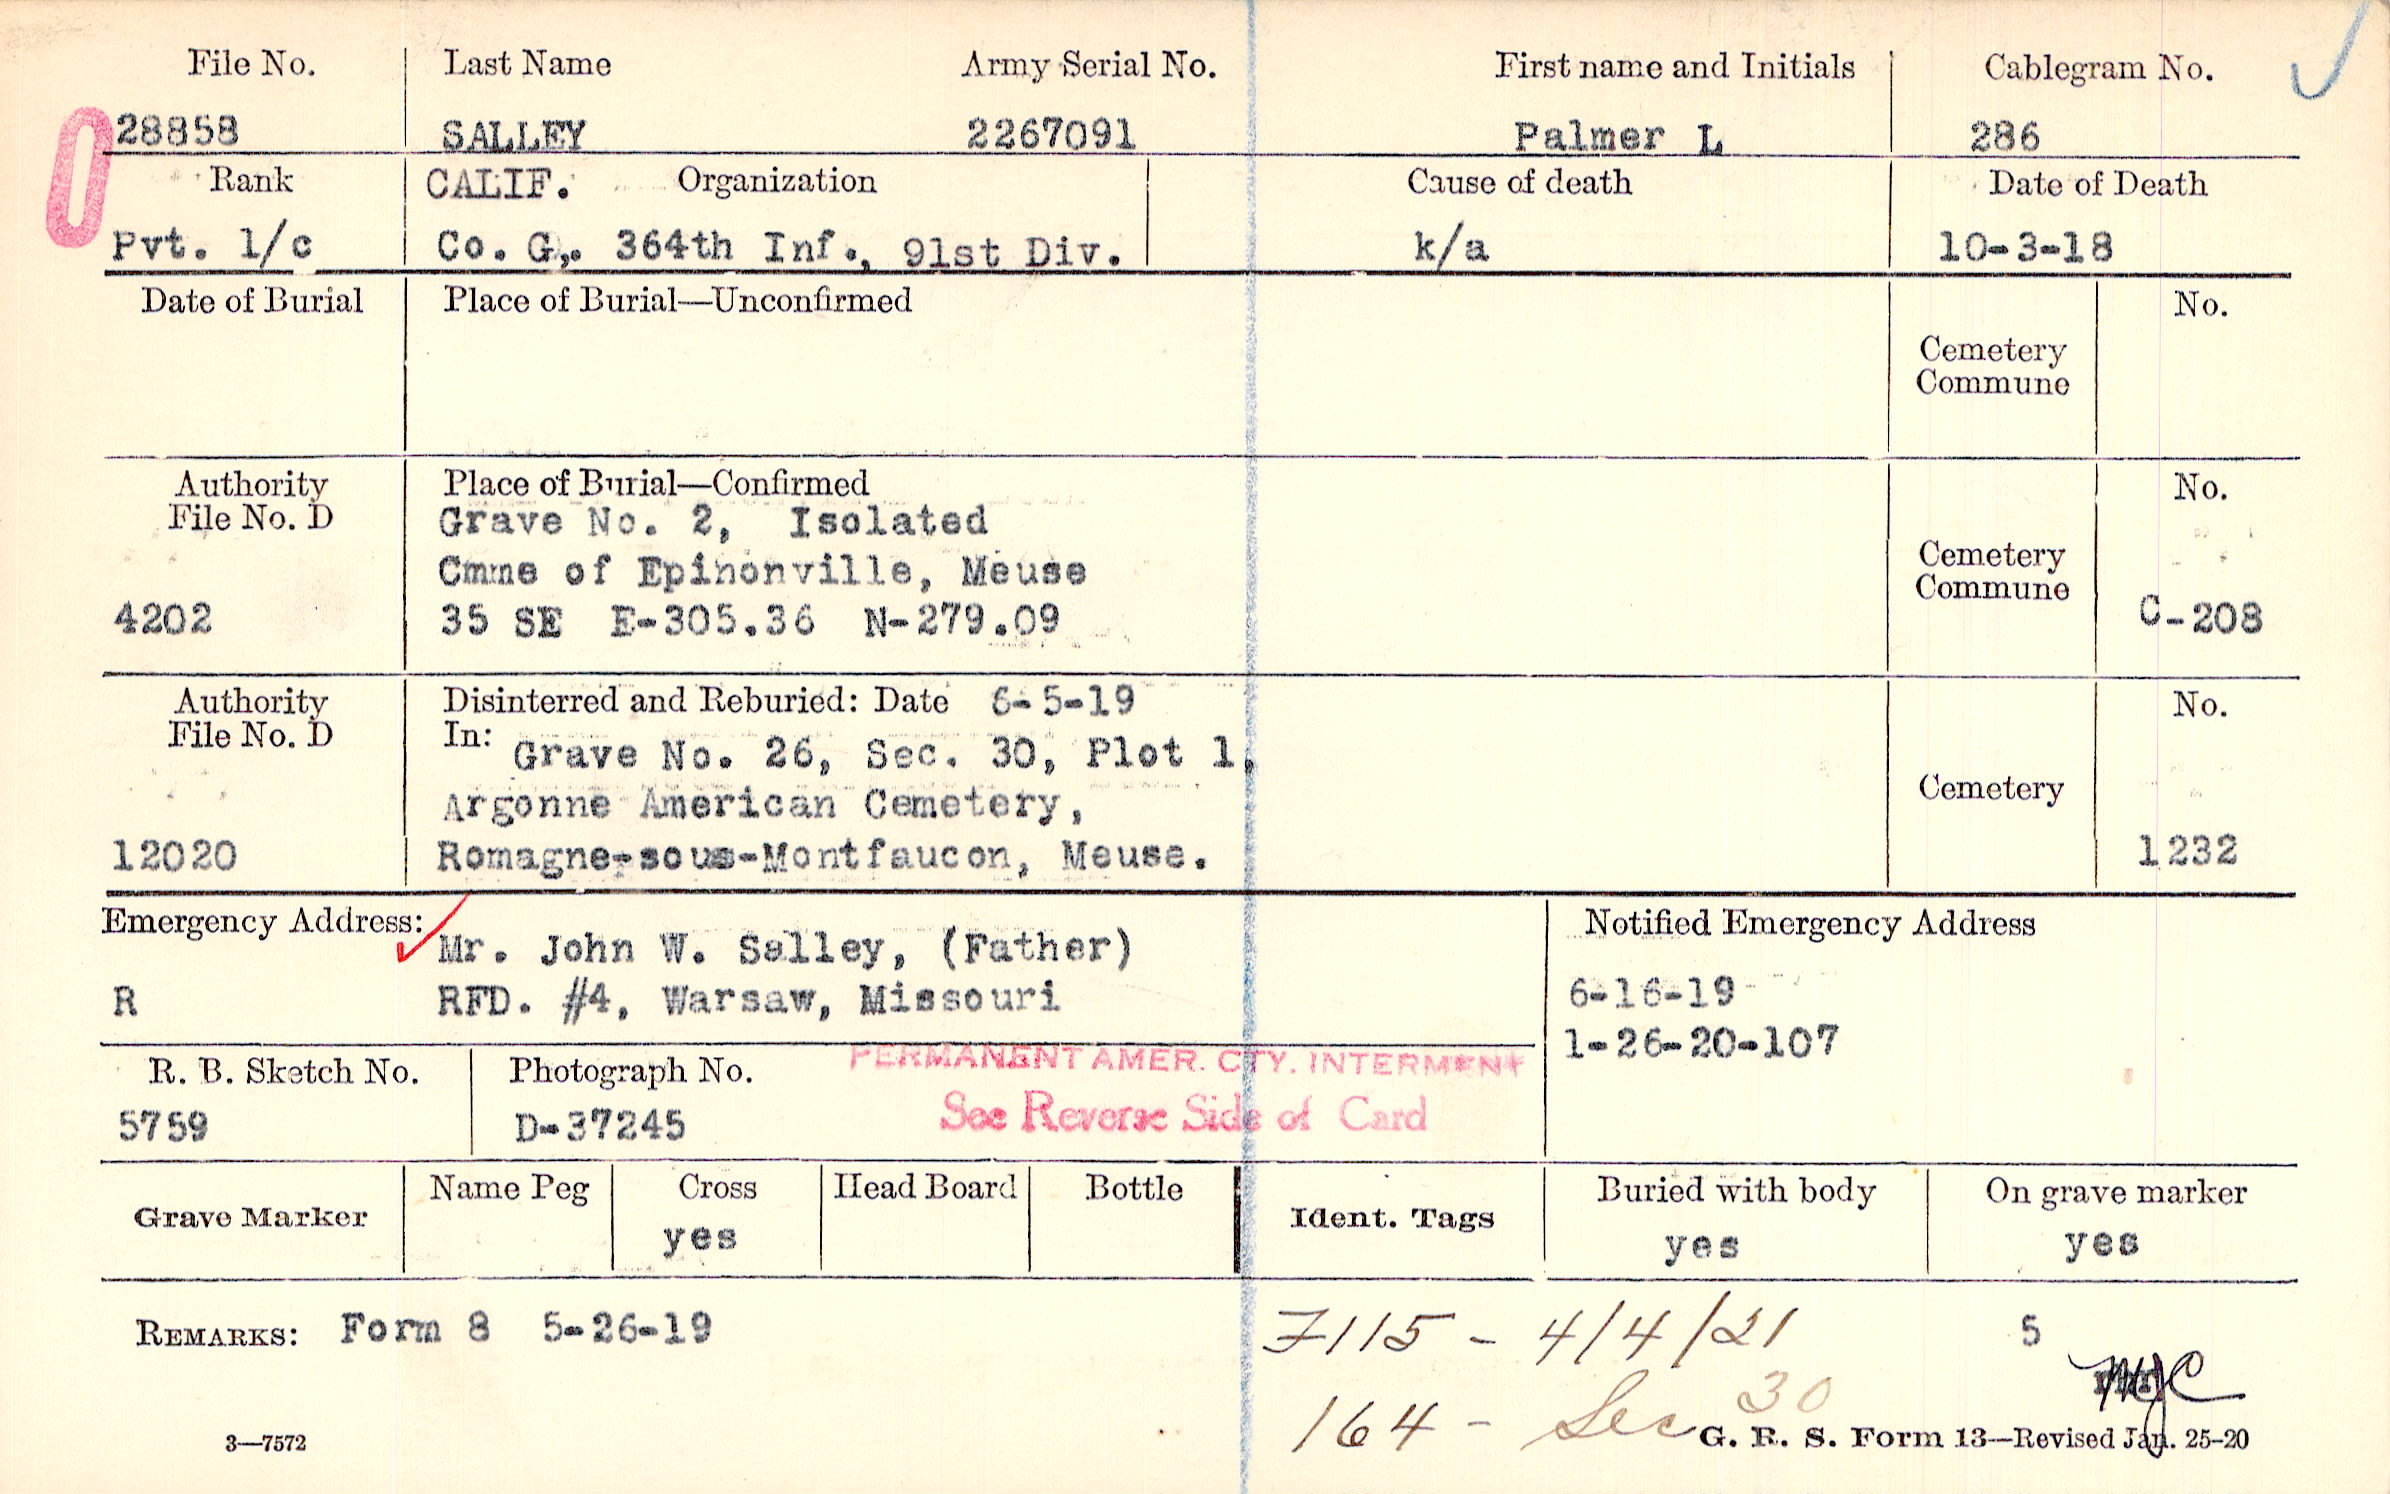 File No. Last Name Army Serial No. First name and Initials Cablegram No.
28858 SALLEY 2267091 Palmer L 286
Rank CALIF. Organization Cause of death Date of Death
Pvt. 1/c Co. G,. 364th Inf., 91st Div. k/a 10-3-18
Date of Burial Place of Burial—Unconfirmed No.
Cemetery
Commune
Authority Place of Burial—Confirmed No.
File No. D Grave No. 2, Isolated
Cmme of Epinonville, Meuse Cemetery
Commune
4202 35 SE E-305.36 N-279.09 C-208
Authority Disinterred and Reburied: Date 6-5-19 No.
File No. D In: Grave No. 26, Sec. 30, Plot 1,
Argonne American Cemetery, Cemetery
12020 Romagne-sous-Montfaucon, Meuse. 1232
Emergency Address: Notified Emergency Address
Mr. John W. Salley, (Father)
R RFD. #4, Warsaw, Missouri 6-16-19
1-26-20-107
PERMANENT AMER. CTY. INTERMENT
R. B. Sketch No. Photograph No. See Reverse Side of Card
5759 D-37245
Grave Marker Name Peg Cross Head Board Bottle Ident. Tags Buried with body On grave marker
yes yes yes
REMARKS: Form 8 5-26-19 7115 - 4/4/21 5
164 - Sec 30
3—7572 G. R. S. Form 13—Revised Jan. 25-20